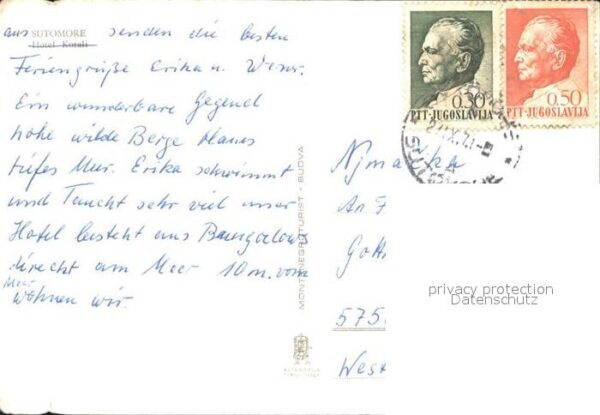 aus SUTOMORE senden die besten
Hotel Korali
Feriengrüße Erika u. Werner.
Ein wunderbare Gegend
hohe wilde Berge blaues
tiefes Meer. Erika schwimmt
und Taucht sehr viel unser
Hotel besteht aus Bungalows
direckt am Meer 10 m. vom
Meer
wohnen wir.
MONTENEGROTURIST - BUDVA
0.30
PTT-JUGOSLAVIJA
0.50
PTT-JUGOSLAVIJA
An F
Gott
575
West
privacy protection
Datenschutz